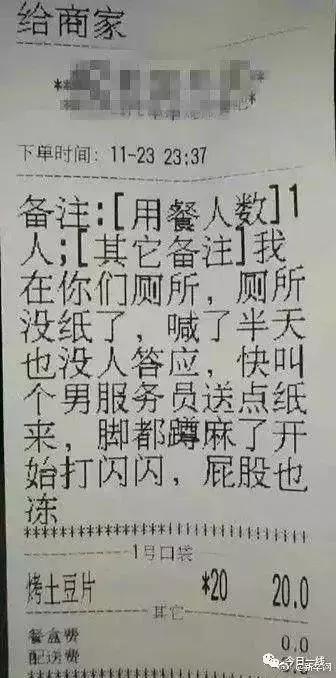 给商家
下单时间：11-23 23:37
备注:[用餐人数]1
人;[其它备注]我
在你们厕所，厕所
没纸了，喊了半天
也没人答应，快叫
个男服务员送点纸
来，脚都蹲麻了开
始打闪闪，屁股也
冻
1号口袋
烤土豆片 *20 20.0
其它
餐盒费 0.0
配送费
今日一线